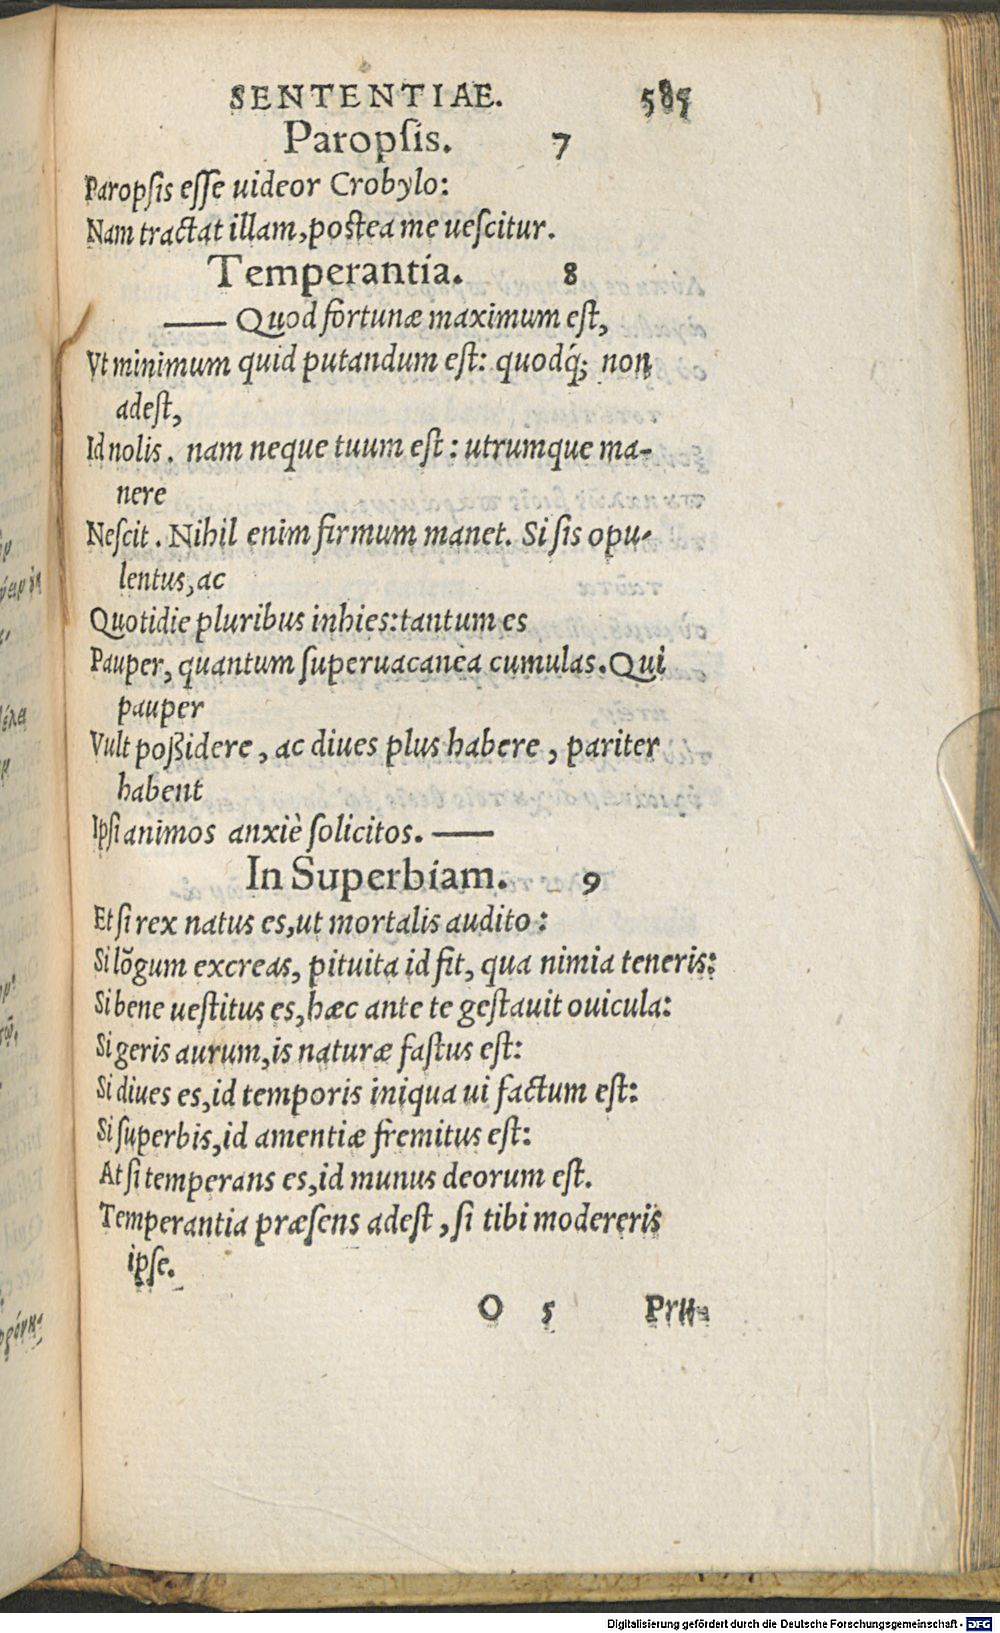 SENTENTIAE. 585
Paropſis. 7
Paropſis eſſe uideor Crobylo:
Nam tractat illam, poſtea me ueſcitur.
Temperantia. 8
—— Quod fortunæ maximum eſt,
Vt minimum quid putandum eſt: quodq́; non
adeſt,
Id nolis. nam neque tuum eſt: utrumque ma-
nere
Neſcit. Nihil enim firmum manet. Si ſis opu-
lentus, ac
Quotidie pluribus inhies: tantum es
Pauper, quantum ſuperuacanea cumulas. Qui
pauper
Vult poßidere, ac diues plus habere, pariter
habent
Ipſi animos anxiè ſolicitos. ——
In Superbiam. 9
Et ſi rex natus es, ut mortalis audito:
Si lõgum excreas, pituita id fit, qua nimia teneris:
Si bene ueſtitus es, hæc ante te geſtauit ouicula:
Si geris aurum, is naturæ faſtus eſt:
Si diues es, id temporis iniqua ui factum eſt:
Si ſuperbis, id amentiæ fremitus eſt:
At ſi temperans es, id munus deorum eſt.
Temperantia præſens adeſt, ſi tibi modereris
ipſe.
O 5 Pru-
Digitalisierung gefördert durch die Deutsche Forschungsgemeinschaft - DFG